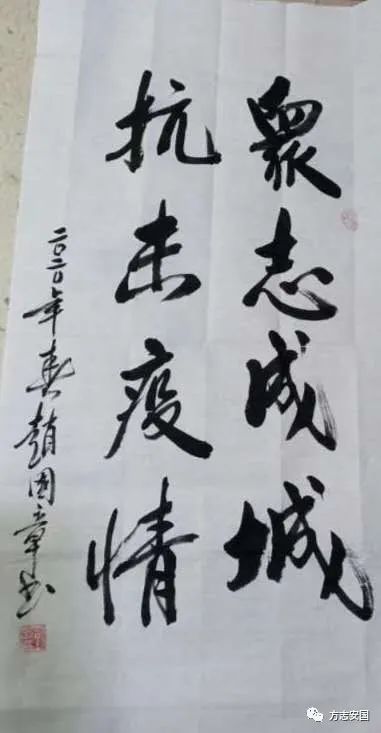 眾志成城
抗击疫情
二〇二〇年春趙国章书
方志安国